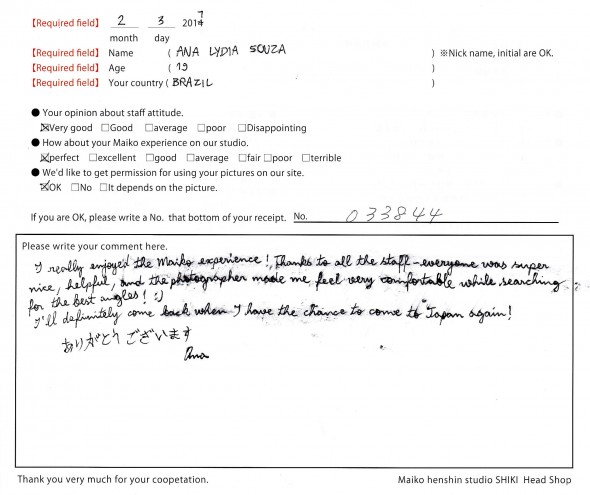 【Required field】 2 3 2017
month day
【Required field】 Name ( ANA LYDIA SOUZA ) ※Nick name, initial are OK.
【Required field】 Age ( 19 )
【Required field】 Your country ( BRAZIL )
● Your opinion about staff attitude.
☒Very good □Good □average □poor □Disappointing
● How about your Maiko experience on our studio.
☒perfect □excellent □good □average □fair □poor □terrible
● We'd like to get permission for using your pictures on our site.
☒OK □No □It depends on the picture.
If you are OK, please write a No. that bottom of your receipt. No. 033844
Please write your comment here.
I really enjoyed the Maiko experience! Thanks to all the staff - everyone was super
nice, helpful, and the photographer made me feel very comfortable while searching
for the best angles! :)
I'll definitely come back when I have the chance to come to Japan again!
ありがとうございます
Ana
Thank you very much for your coopetation. Maiko henshin studio SHIKI Head Shop